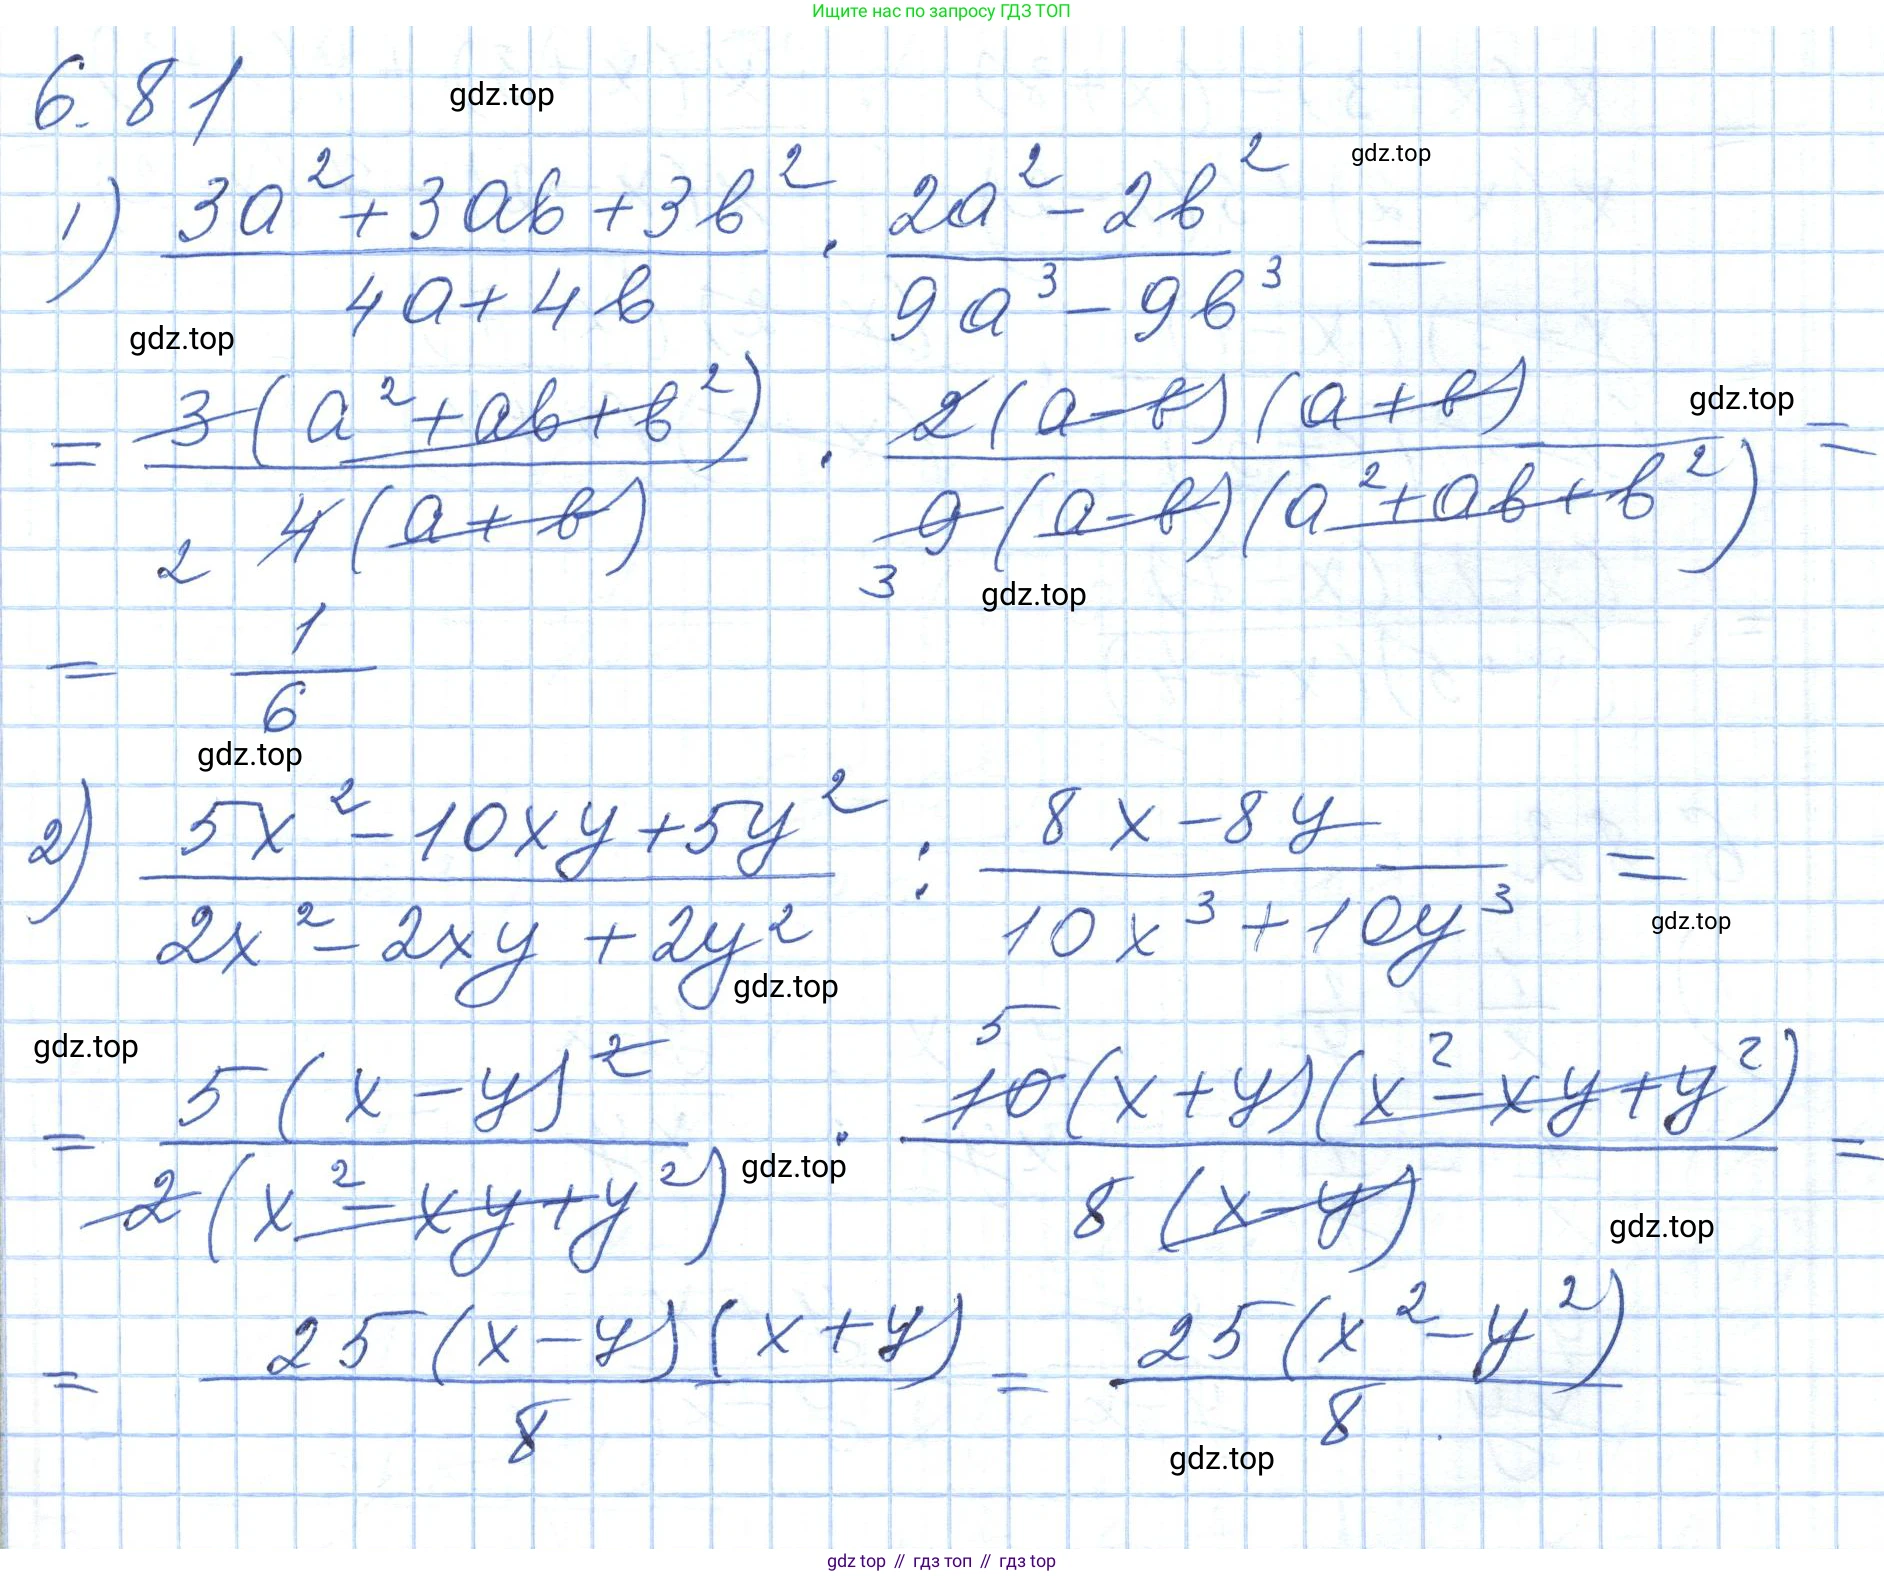 Ищите нас по запросу ГДЗ ТОП
6.81
gdz.top
1) (3a² + 3ab + 3b²)/(4a + 4b) · (2a² - 2b²)/(9a³ - 9b³) =
gdz.top
gdz.top
= 3(a² + ab + b²)/(4(a + b)) · 2(a - b)(a + b)/(9(a - b)(a² + ab + b²)) =
gdz.top
2 3
gdz.top
= 1/6
gdz.top
2) (5x² - 10xy + 5y²)/(2x² - 2xy + 2y²) : (8x - 8y)/(10x³ + 10y³) =
gdz.top
gdz.top
gdz.top
5
= 5(x - y)²/(2(x² - xy + y²)) · 10(x + y)(x² - xy + y²)/(8(x - y)) =
gdz.top
gdz.top
= 25(x - y)(x + y)/8 = 25(x² - y²)/8
gdz.top
gdz top // гдз топ // гдз top